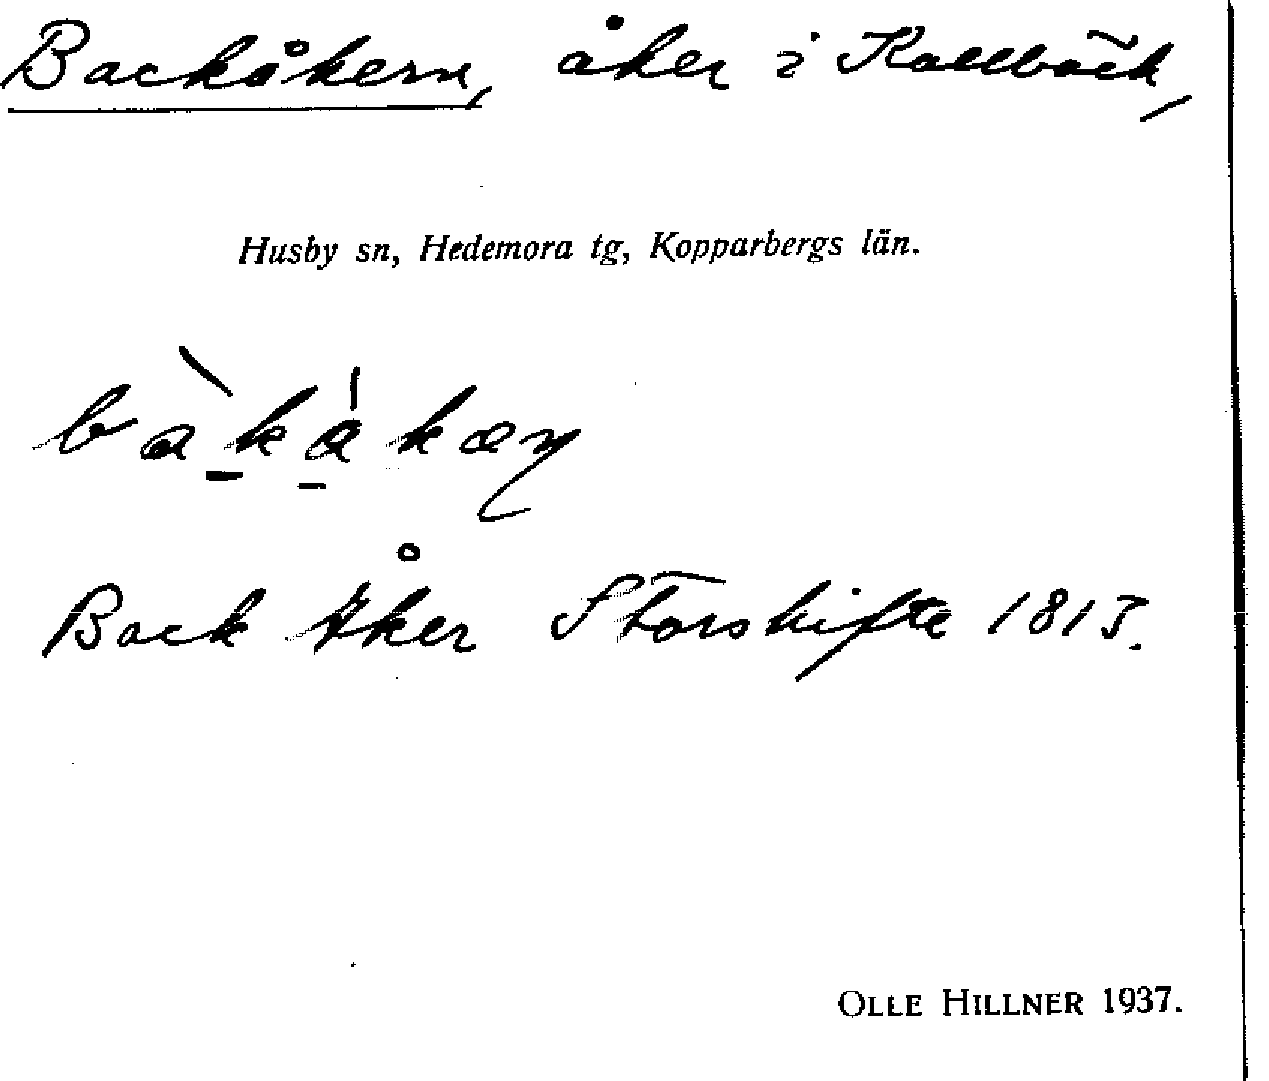 Backåkern, åker i Kallbäck,
Husby sn, Hedemora tg, Kopparbergs län.
bàkåkæɳ
Back Åker Storskifte 1815.
OLLE HILLNER 1937.